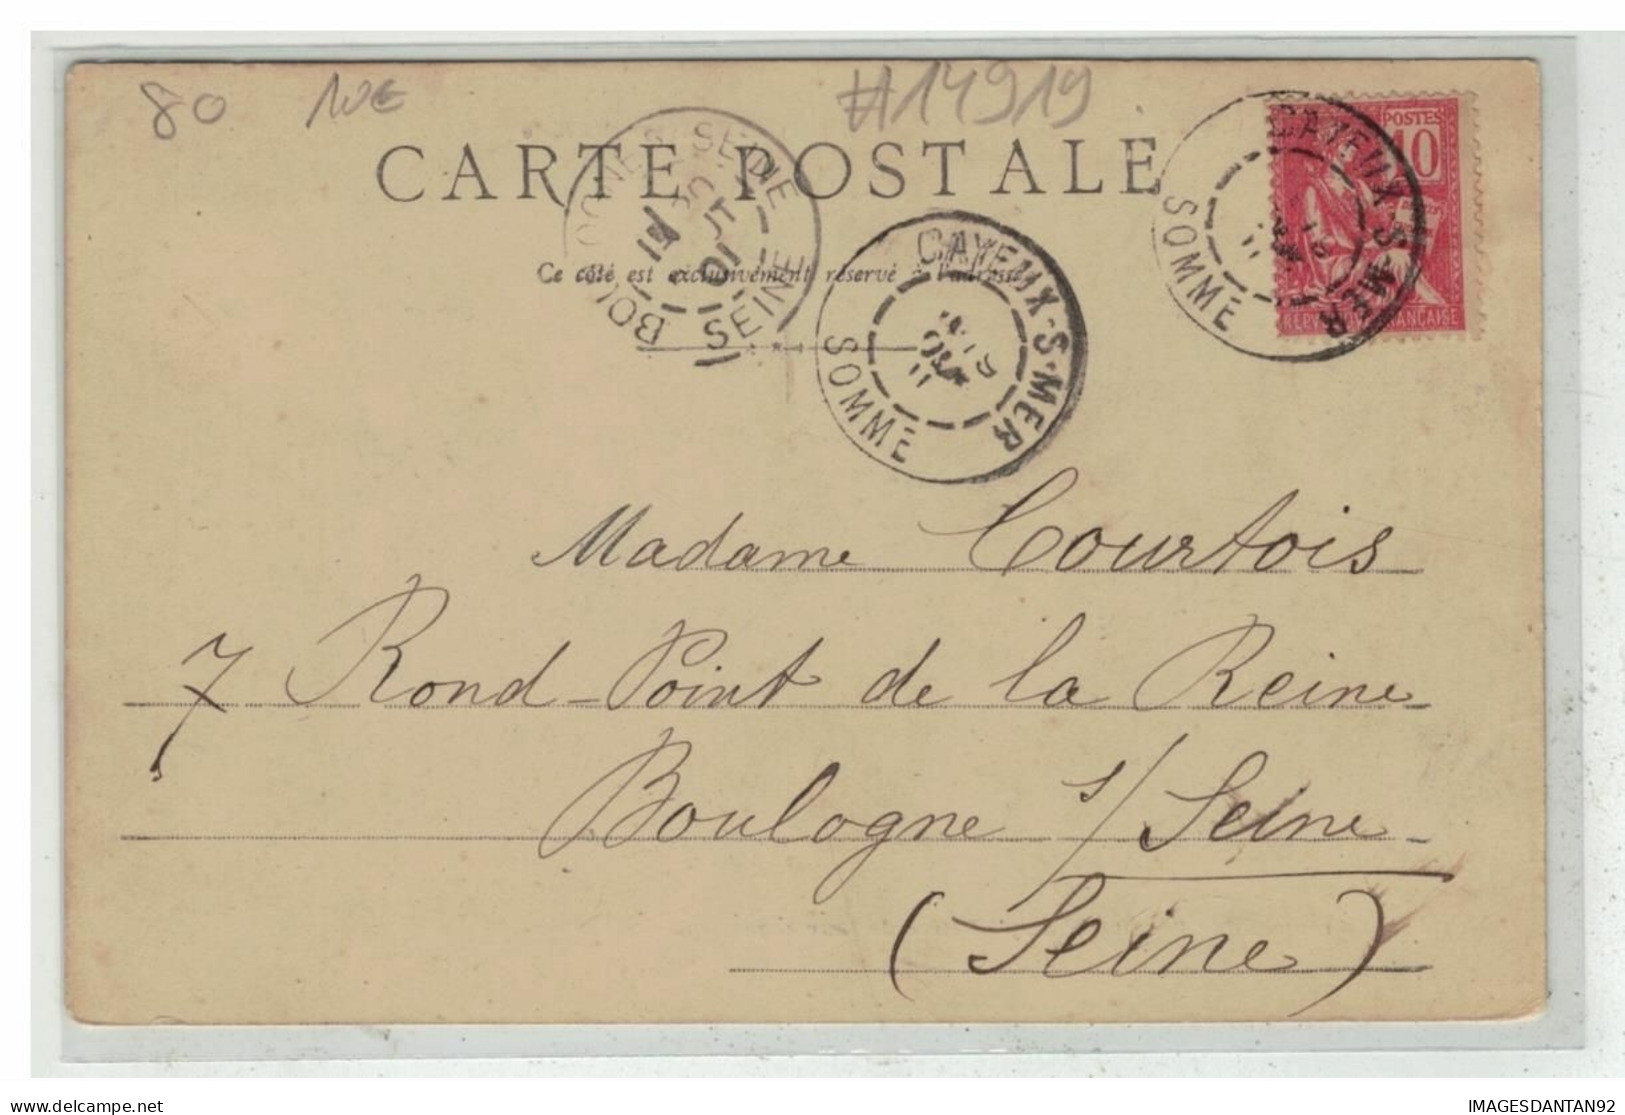 80 10€ #14919
CARTE POSTALE
POSTES
10
RÉPUBLIQUE FRANÇAISE
CAYEUX-S-MER
SOMME
BOULOGNE-S-SEINE
SEINE
01
Ce côté est exclusivement réservé à l'adresse
CAYEUX-S-MER
SOMME
Madame Courtois
7 Rond-Point de la Reine
Boulogne s/Seine
(Seine)
delcampe.net
IMAGESDANTAN92